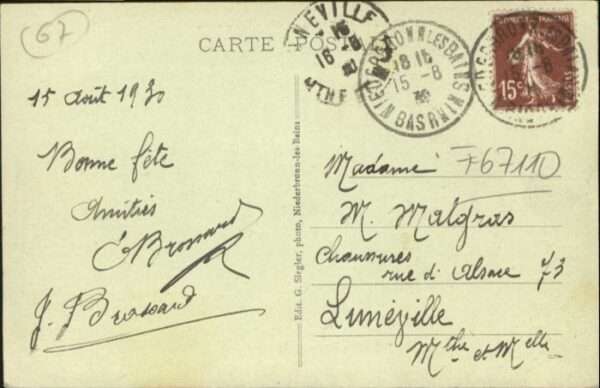 67
CARTE POSTALE
15 Août 1930
Bonne fête
Amitiés
E Brossard
J. Brossard
Edit. G. Siegler, photo, Niederbronn-les-Bains
NIEDERBRONN LES BAINS
18 15
15 - 8
BAS RHIN
15c
Madame F67110
M. Malgras
Chaussures
rue d'Alsace 73
Lunéville
Mthe et Melle